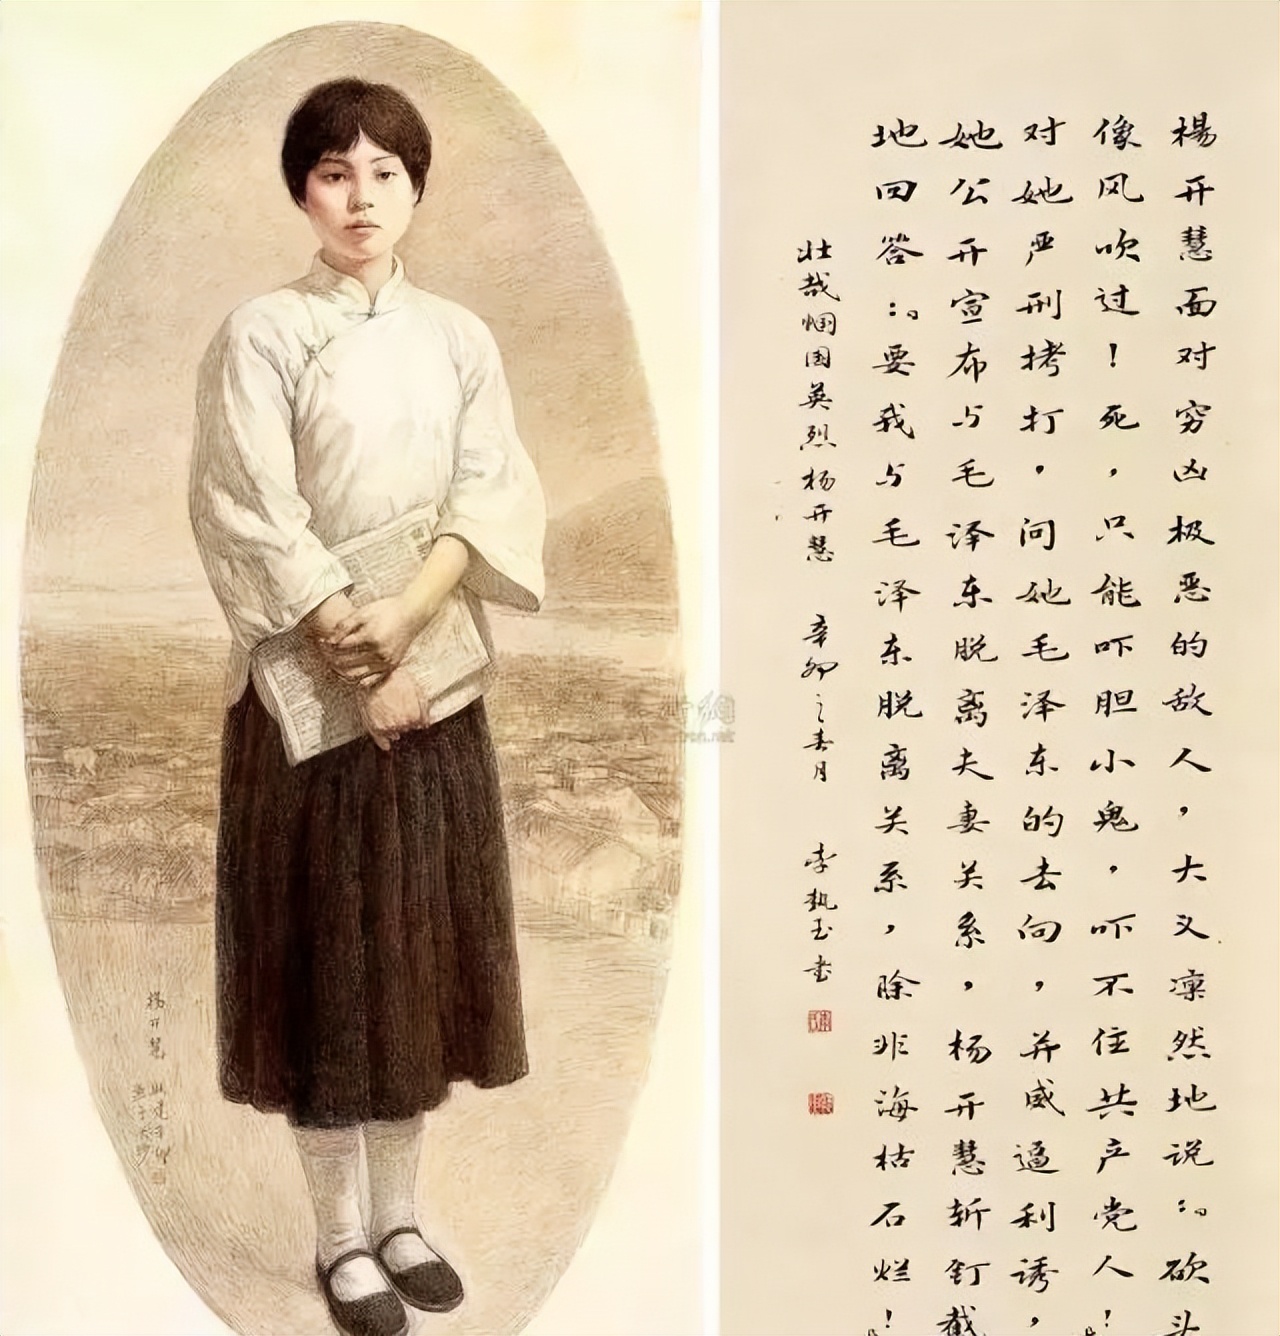 楊开慧面对穷凶极恶的敌人，大义凛然地说：“砍头
像风吹过！死，只能吓胆小鬼，吓不住共产党人！”
对她严刑拷打。问她毛泽东的去向，并威逼利诱，
她公开宣布与毛泽东脱离夫妻关系，杨开慧斩钉截
地回答：“要我与毛泽东脱离关系，除非海枯石烂！”
壮哉帼国英烈杨开慧 辛卯之春月 李执玉书
楊开慧